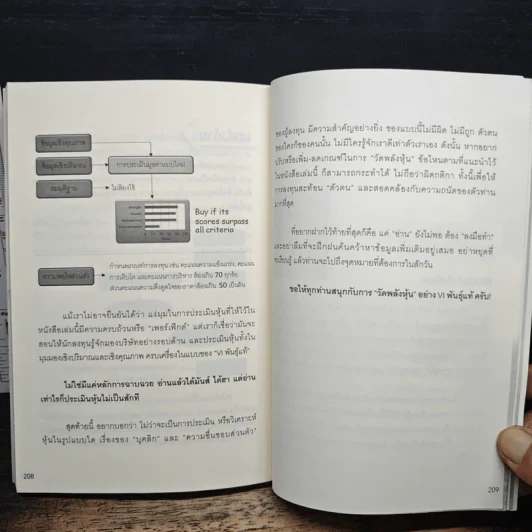 ข้อมูลเชิงคุณภาพ
ข้อมูลเชิงปริมาณ
การประเมินมูลค่าแบบใหม่
สมมุติฐาน
ไม่ต้องใช้
Buy if its
scores surpass
all criteria
ความพอใจส่วนตัว
กำหนดเกณฑ์การลงทุน เช่น คะแนนความแข็งแกร่ง, คะแนน
การเติบโต และคะแนนการบริหาร ต้องเกิน 70 ทุกข้อ
ส่วนคะแนนความดึงดูดใจของราคาต้องเกิน 50 เป็นต้น
แม้เราไม่อาจยืนยันได้ว่า แง่มุมในการประเมินหุ้นที่ให้ไว้ใน
หนังสือเล่มนี้มีความครบถ้วนหรือ “เพอร์เฟ็กต์” แต่เราก็เชื่อว่ามันจะ
สอนให้นักลงทุนรู้จักมองบริษัทอย่างรอบด้าน และประเมินหุ้นทั้งใน
มุมมองเชิงปริมาณและเชิงคุณภาพ ครบเครื่องในแบบของ “VI พันธุ์แท้”
ไม่ใช่มีแค่หลักการฉาบฉวย อ่านแล้วได้มันส์ ได้ฮา แต่อ่าน
เท่าไรก็ประเมินหุ้นไม่เป็นสักที
สุดท้ายนี้ อยากบอกว่า ไม่ว่าจะเป็นการประเมิน หรือวิเคราะห์
หุ้นในรูปแบบใด เรื่องของ “บุคลิก” และ “ความชื่นชอบส่วนตัว”
208
ของผู้ลงทุน มีความสำคัญอย่างยิ่ง ของแบบนี้ไม่มีผิด ไม่มีถูก ตัวตน
ของใครก็ของคนนั้น ไม่มีใครรู้จักเราดีเท่าตัวเราเอง ดังนั้น หากอยาก
ปรับหรือเพิ่ม-ลดเกณฑ์ในการ “วัดพลังหุ้น” ข้อไหนตามที่แนะนำไว้
ในหนังสือเล่มนี้ ก็สามารถกระทำได้ ไม่ถือว่าผิดกติกา ทั้งนี้เพื่อให้
การลงทุนสะท้อน “ตัวตน” และสอดคล้องกับความถนัดของตัวท่าน
มากที่สุด
ที่อยากฝากไว้ท้ายที่สุดก็คือ แค่ “อ่าน” ยังไม่พอ ต้อง “ลงมือทำ”
และอย่าลืมที่จะฝึกฝนค้นคว้าหาข้อมูลเพิ่มเติมอยู่เสมอ อย่าหยุดที่
จะเรียนรู้ แล้วท่านจะไปถึงจุดหมายที่ต้องการในสักวัน
ขอให้ทุกท่านสนุกกับการ “วัดพลังหุ้น” อย่าง VI พันธุ์แท้ ครับ!
209